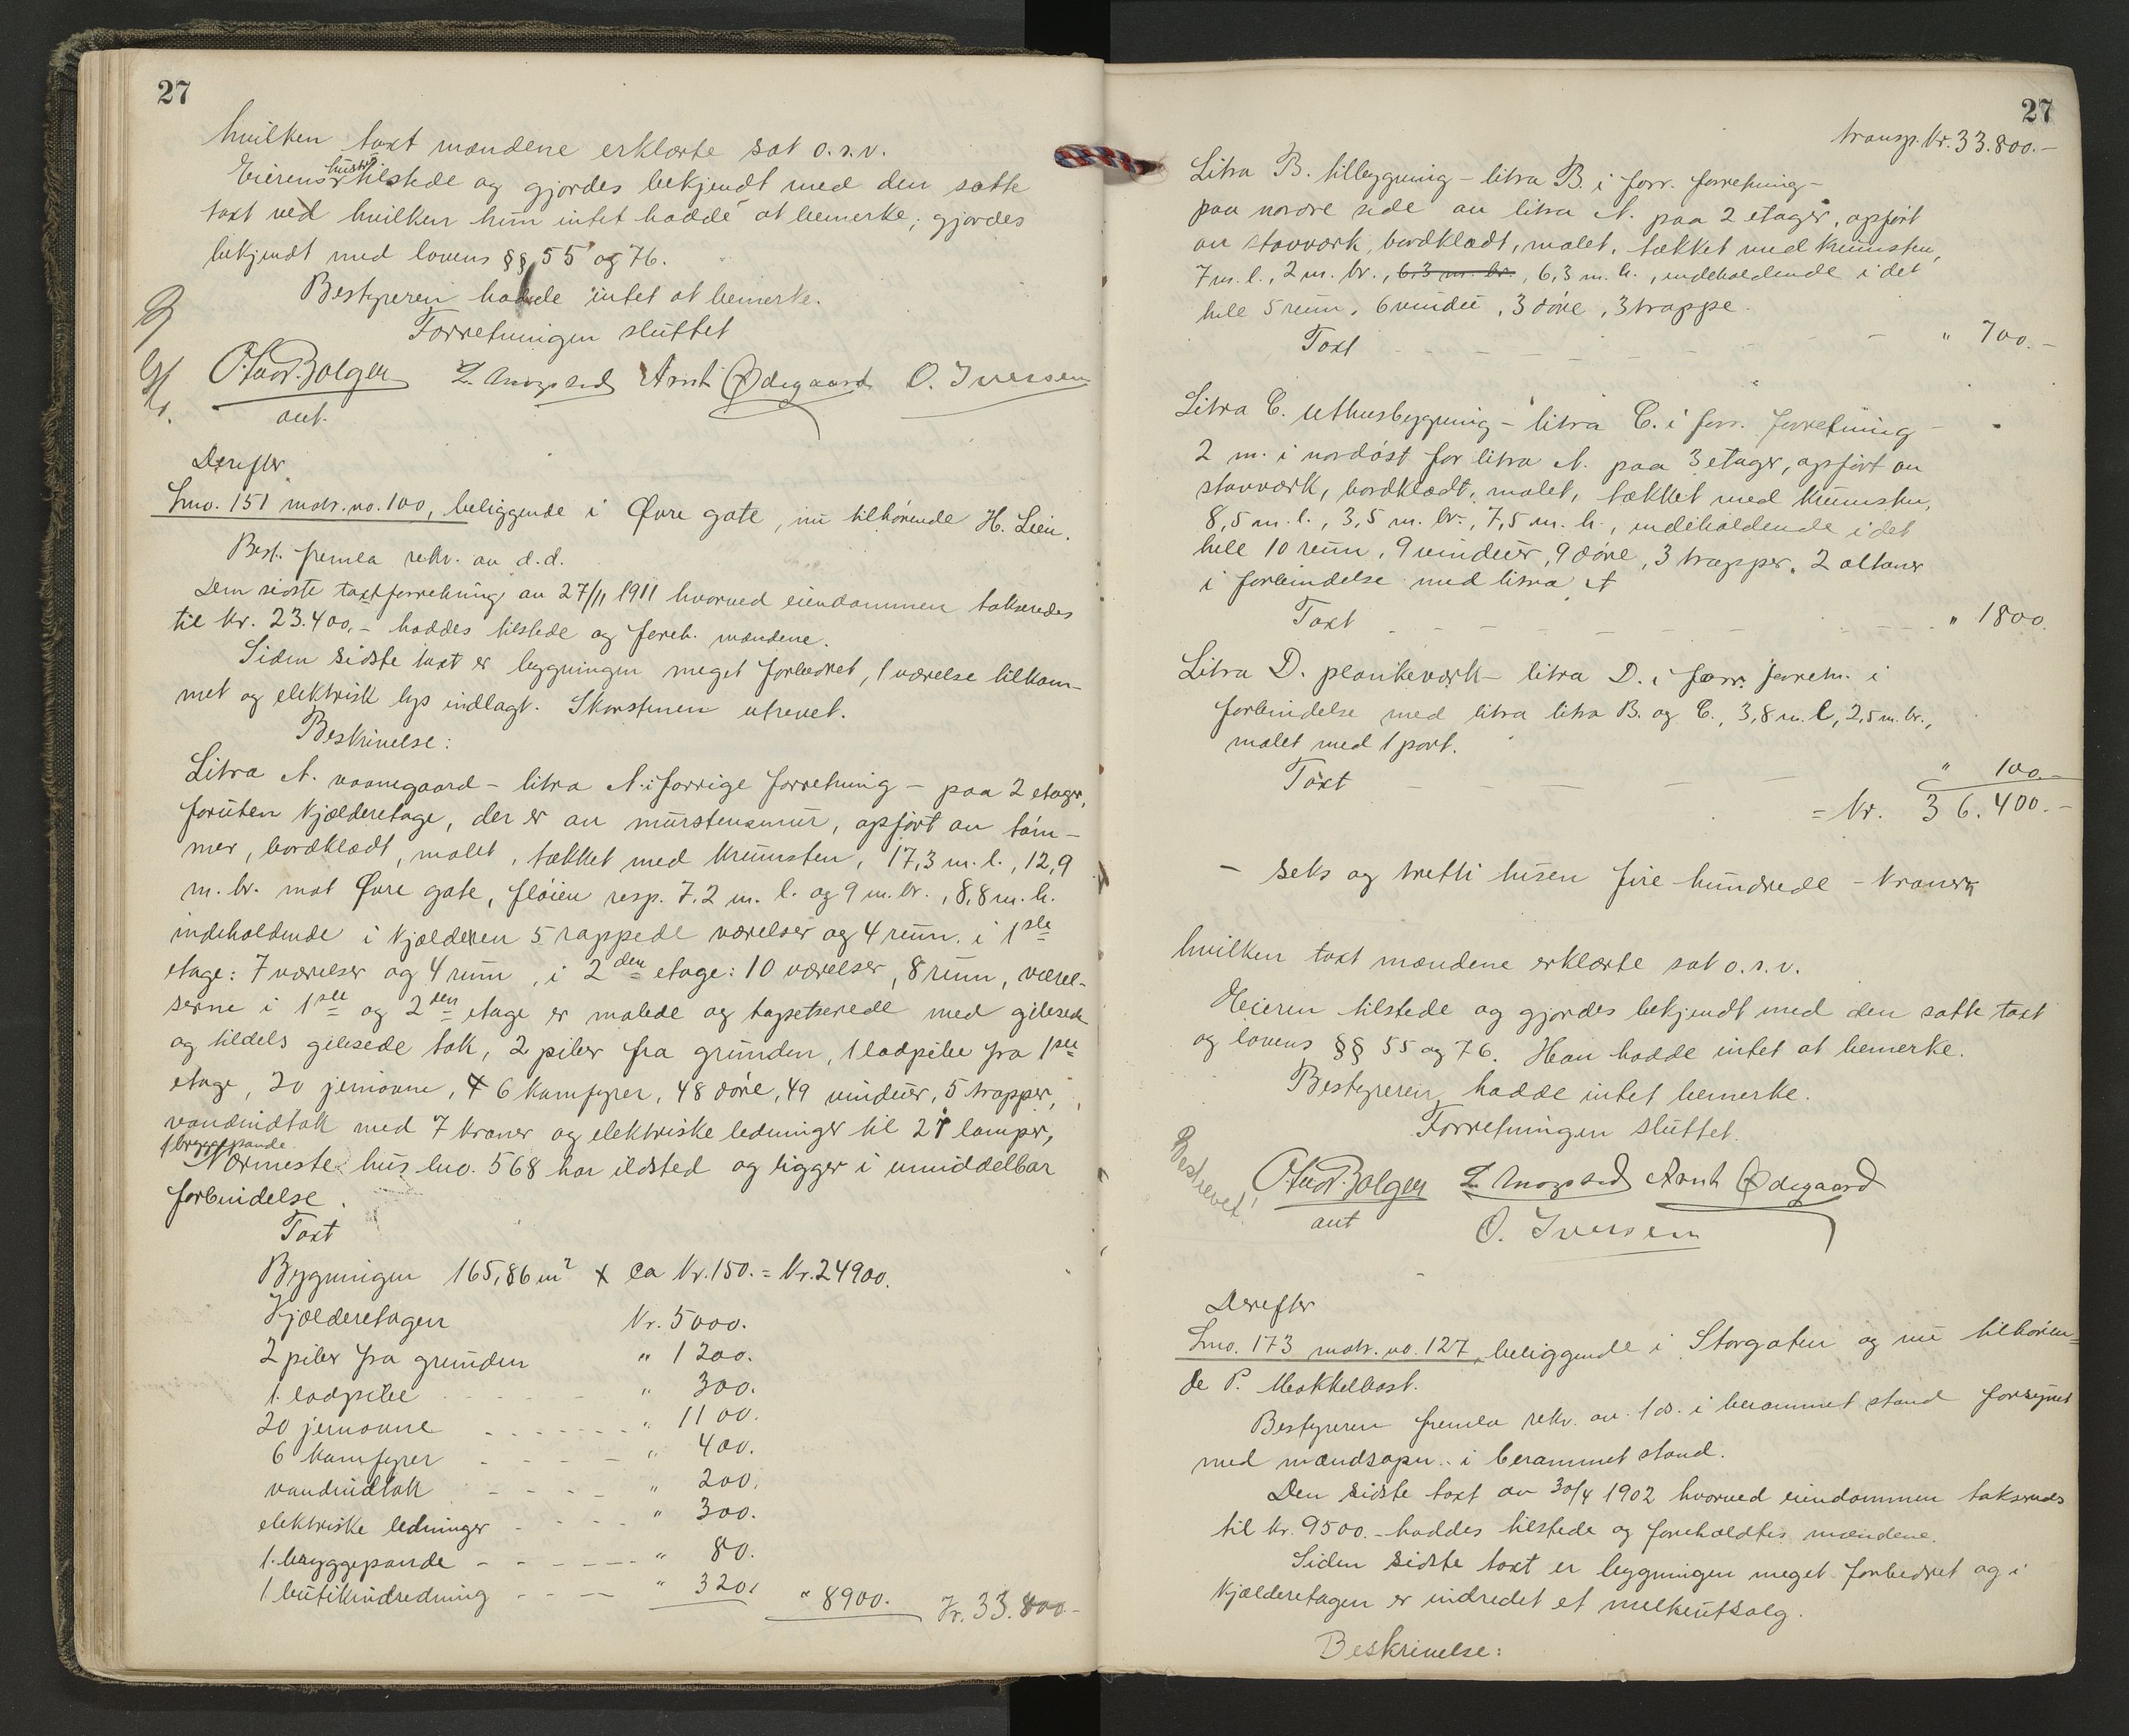 27
hvilken taxt mændene erklærte sat o.s.v.
Eierens hustr. tilstede og gjordes bekjendt med den satte
taxt ved hvilken hun intet hadde at bemerke; gjordes
bekjendt med lovens §§ 55 og 76.
Bestyreren hadde intet at bemerke.
Forretningen sluttet
Arnt Ødegaard O. Iversen
aut.
Derefter
Lno. 151 matr. no. 100, beliggende i Øvre gate, nu tilhørende H. Lein.
Best. fremla rekv. av d.d.
Den sidste taxtforretning av 27/11 1911 hvorved eiendommen takseredes
til kr. 23.400,- haddes tilstede og foreh. mændene.
Siden sidste taxt er bygningen meget forbedret, 1 værelse tilkom-
met og elektrisk lys indlagt. Skorstenen utrevet.
Beskrivelse:
Litra A. vaanegaard - litra A. i forrige forretning - paa 2 etager,
foruten kjælderetage, der er av murstensmur, opført av tøm-
mer, bordklædt, malet, tækket med krumsten, 17,3 m. l., 12,9
m. br. mot Øvre gate, fløien resp. 7.2 m. l. og 9 m. br., 8,8 m. h.
indeholdende i kjælderen 5 rappede værelser og 4 rum. i 1ste
etage: 7 værelser og 4 rum, i 2den etage: 10 værelser, 8 rum, værel-
serne i 1ste og 2den etage er malede og tapetserede med gibsede
og tildels gibsede tak, 2 piber fra grunden, 1 ladpibe fra 1ste
etage, 20 jernovne, 6 komfyrer, 48 døre, 49 vinduer, 5 trapper,
vandindtak med 7 kraner og elektriske ledninger til 21 lamper,
1 bryggepande
Nærmeste hus lno. 568 har ildsted og ligger i umiddelbar
forbindelse.
Taxt
Bygningen 165,86 m² x ca kr. 150. = kr. 24900.
Kjælderetagen kr. 5000.
2 piber fra grunden " 1200.
1 ladpibe " 300.
20 jernovne " 1100.
6 komfyrer " 400.
vandindtak " 200.
elektriske ledninger " 300.
1 bryggepande " 80.
1 butikindredning " 320. " 8900. Kr. 33.800.-
27
transp. kr. 33.800.-
Litra B. tilbygning - litra B. i forr. forretning -
paa nordre side av litra A. paa 2 etager, opført
av stavverk, bordklædt, malet, tækket med krumsten,
7 m. l., 2 m. br., 6,3 m. br., 6,3 m. h., indeholdende i det
hele 5 rum, 6 vindu, 3 døre, 3 trappe.
Taxt " 700.-
Litra C. uthusbygning - litra C. i forr. forretning -
2 m. i nordøst for litra A. paa 3 etager, opført av
stavværk, bordklædt, malet, tækket med krumsten,
8,5 m. l., 3,5 m. br., 7,5 m. h., indeholdende i det
hele 10 rum, 9 vinduer, 9 døre, 3 trapper, 2 altaner
i forbindelse med litra A
Taxt " 1800.
Litra D. plankeværk - litra D. i forr. forretn. i
forbindelse med litra litra B. og C., 3,8 m. l, 2,5 m. br.,
malet med 1 port.
Taxt " 100.-
= kr. 36.400.-
- seks og tretti tusen fire hundrede - kroner
hvilken taxt mændene erklærte sat o.s.v.
Eieren tilstede og gjordes bekjendt med den satte taxt
og lovens §§ 55 og 76. Han hadde intet at bemerke.
Bestyreren hadde intet bemerke.
Forretningen sluttet.
Beskrevet!
Arnt Ødegaard
aut O. Iversen
Derefter
Lno. 173 matr. no. 127, beliggende i Storgaten og nu tilhøren-
de P. Mokkelbost.
Bestyreren fremla rekv. av 1 ds. i berammet stand forsynet
med mændsopn. i berammet stand.
Den sidste taxt av 30/4 1902 hvorved eiendommen takseredes
til kr. 9500.- haddes tilstede og foreholdtes mændene.
Siden sidste taxt er bygningen meget forbedret og i
kjælderetagen er indredet et melkeutsalg.
Beskrivelse: